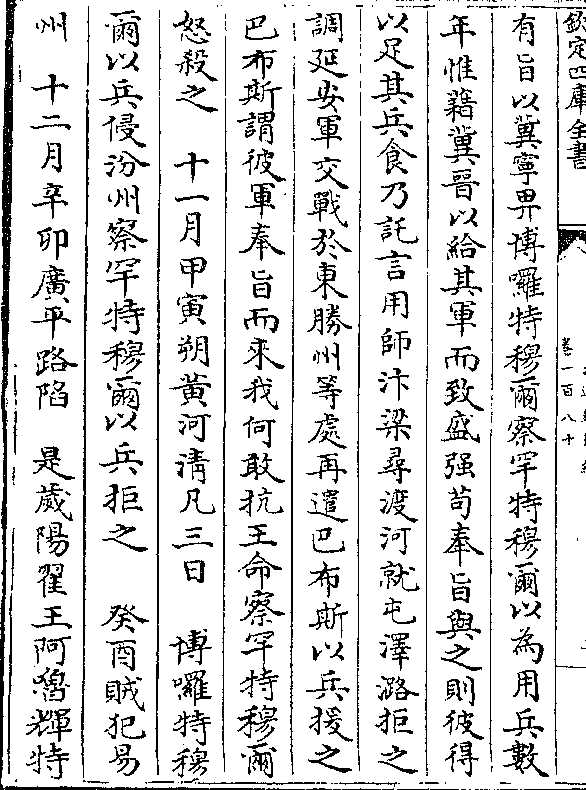 欽定四庫全書
卷一百八十
有旨以冀寧畀博囉特穆爾察罕特穆爾以為用兵數
年惟藉冀晉以給其軍而致盛强苟奉旨與之則彼得
以足其兵食乃託言用師汴梁尋渡河就屯澤潞拒之
調延安軍交戰於東勝州等處再遣巴布斯以兵援之
巴布斯謂彼軍奉旨而來我何敢抗王命察罕特穆爾
怒殺之　十一月甲寅朔黃河清凡三日　博囉特穆
爾以兵侵汾州察罕特穆爾以兵拒之　癸酉賊犯易
州　十二月辛卯廣平路陷　是歲陽翟王阿魯輝特